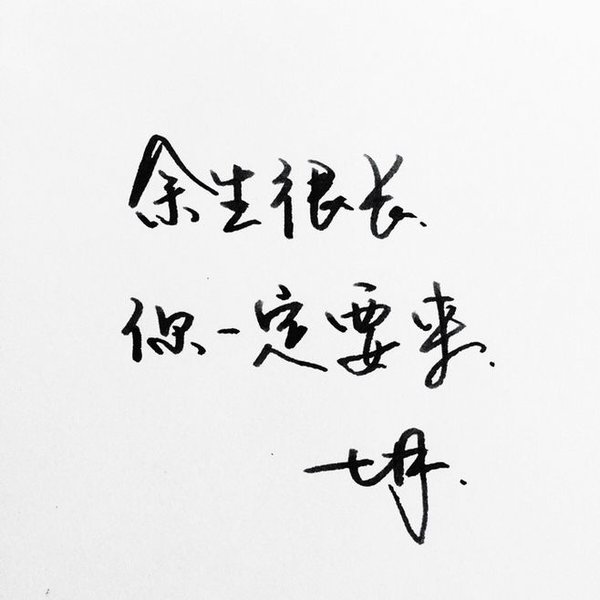 余生很长.
你一定要来.